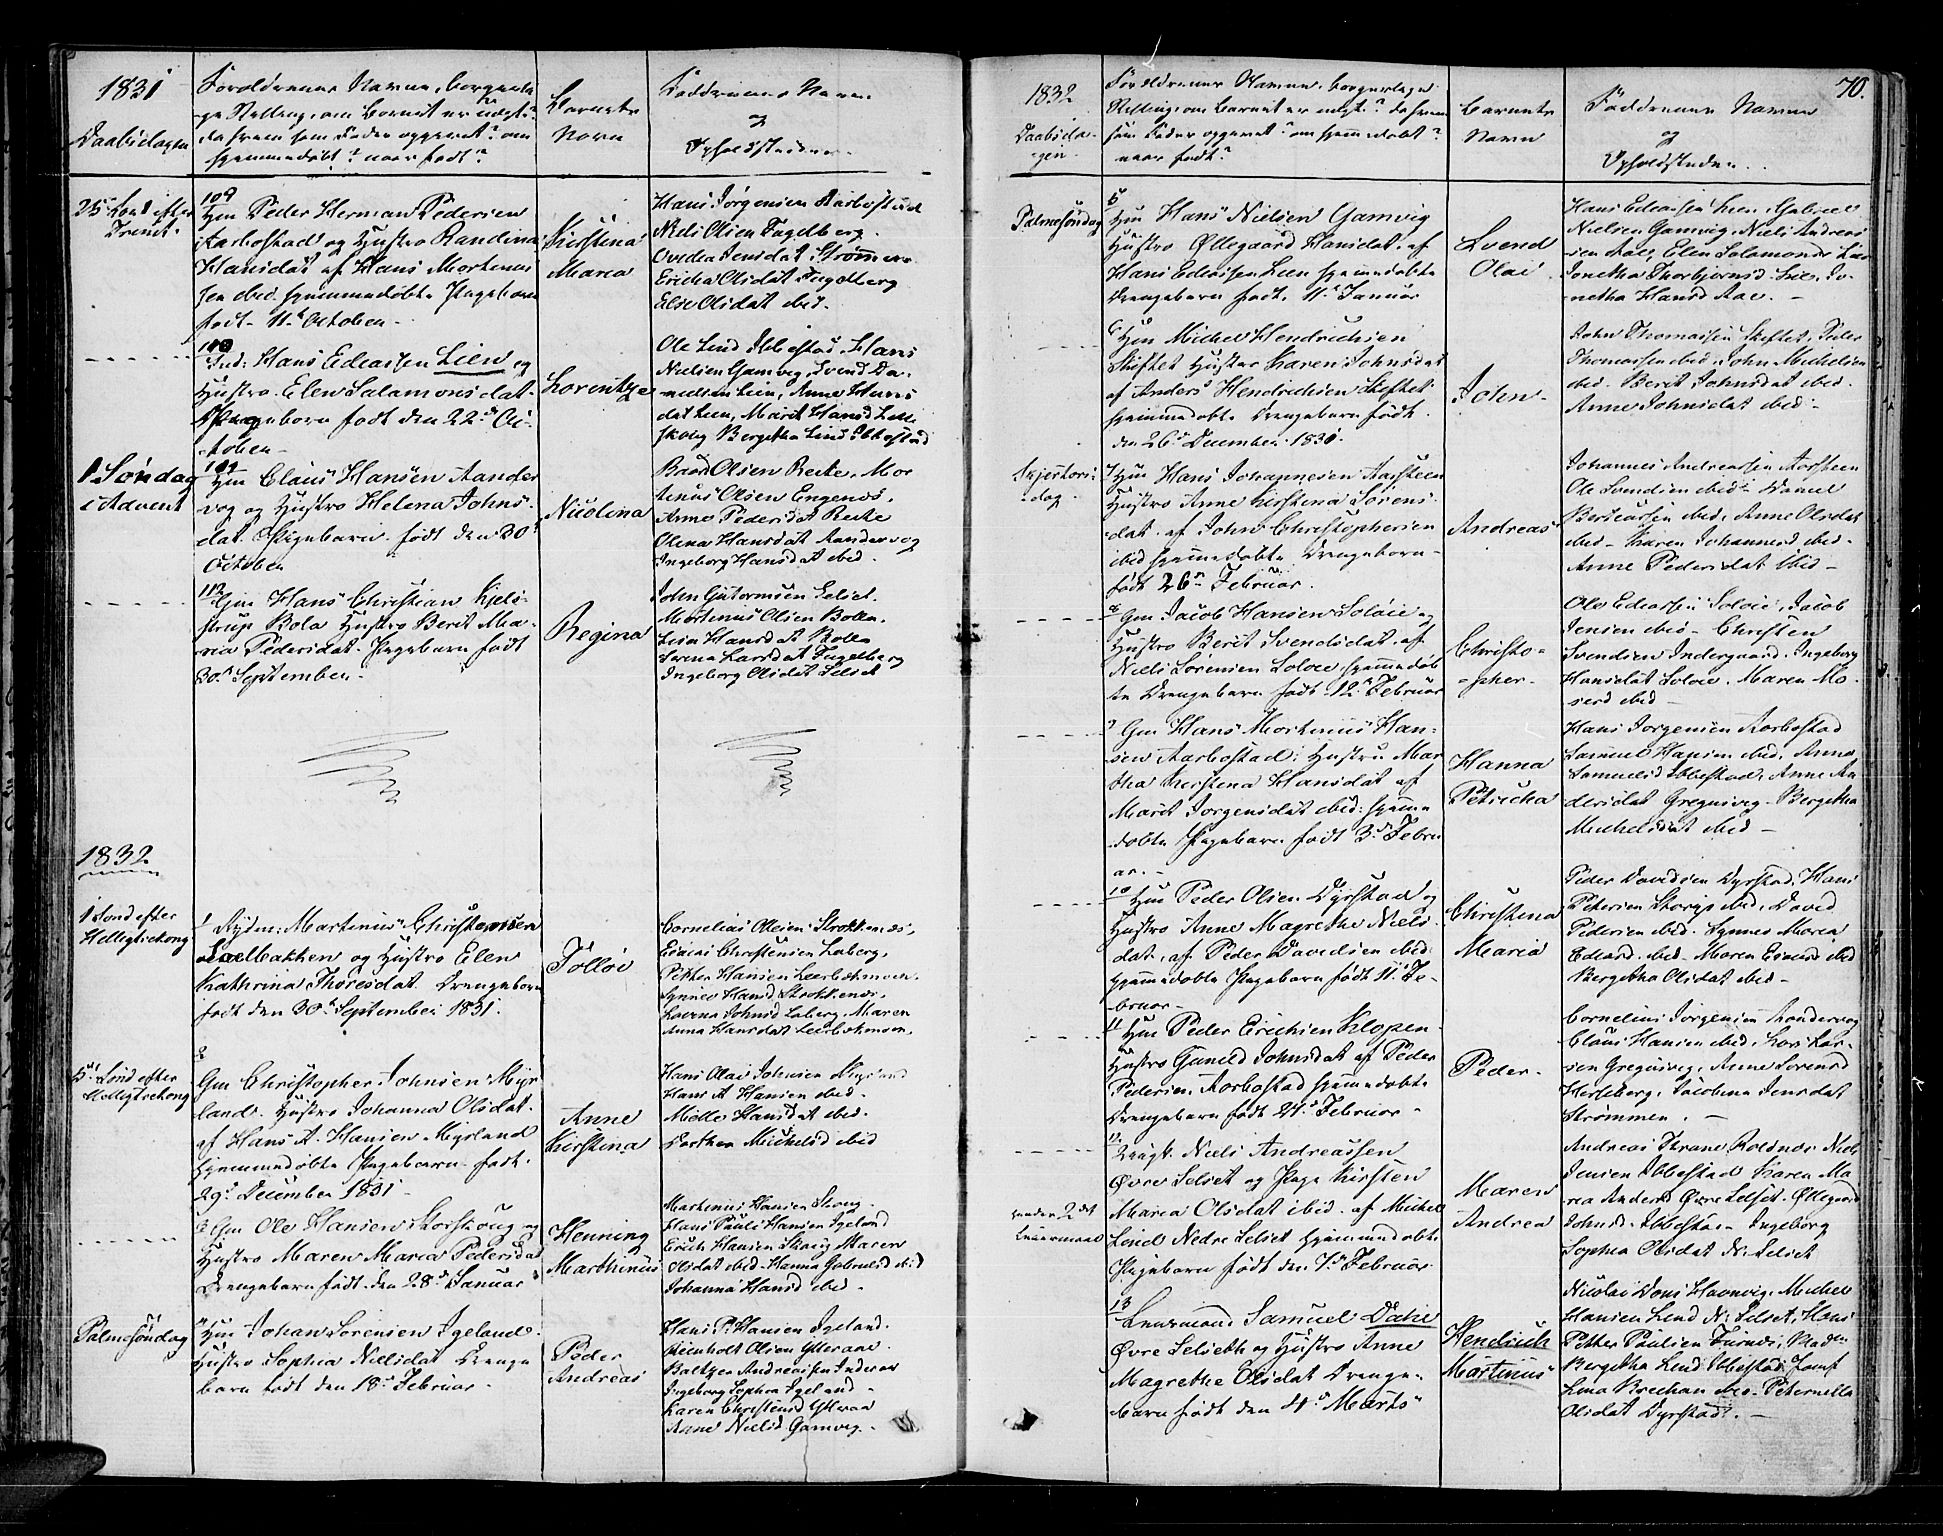 1831
Daabsdagen
Forældrenes Navne, borgerli-
ge Stilling, om Barnet er uægt?
da hvem som Fader opgivet? om
hjemmedøbt? naar født?
Barnets
Navn
Faddernes Navne
og
Opholdsteder
25de Sønd. efter
Trinit.
109
Gm Peder Herman Pedersen
Aarbostad og Hustro Randina
Hansdat af Hans Morten
sen ibid. hjemmedøbte Pigebarn
født 11te October
Kirstina
Maria
Hans Jørgensen Aarbostad
Niels Olsen Fugelberg
Ovedia Jensdat Strømmen
Ericka Olsdat Fugelberg
Else Olsdat ibid.
110
Ind: Hans Edeassen Lien og
Hustro Elen Salamonsdat
Pigebarn født den 22de Oc-
tober
Lorentze
Ole Lind Ibbestad, Hans
Nielsen Gamvig, Svend Da-
nielsen Lien, Anne Hans
dat Lien, Marit Hansd
skoug Bergetha Lind Ibbestad
1 Søndag
i Advent
111
Gm Claus Hansen Aander
vog og Hustro Helena Johns-
dat Pigebarn født den 30te
October
Nicolina
Baar Olsen Reite, Mor
tinus Olsen Engenes,
Anne Pedersdat Reite
Olena Hansdat Aandervog
Ingeborg Hansdat ibid.
112
Gm Hans Christian Kjels-
trup Bola Hustro Berit Ma-
ria Pedersdat Pigebarn født
30te September
Regina
John Guttormsen Selset
Mortinus Olsen Bolla
Hansdat Bolla
Larsdat Fugelberg
Ingeborg Olsdat Selset
1832
1 Sønd efter
Helligtrekong
1
Rydn: Martinus Christensen
Leelbakken og Hustro Elen
Kathrina Thoresdat Drengebarn
født den 30te September 1831
Tølløv
Cornelius Olsen Strokkenæs,
Esaias Christensen Laberg,
Petter Hansen Leerbekmoen,
Synnev Hansd Strokkenæs,
Johnsd Laberg, Maren
Anna Hansdat Leerbekmoen,
5te Sønd efter
Helligtrekong
2
Gm Christopher Johnsen Myr
land Hustro Johanna Olsdat
af Hans A. Hansen Myrland
hjemmedøbte Pigebarn født
29de December 1831
Anne
Kirstina
Hans Olai Johnsen Myrland
Hans A Hansen ibid.
Molle Hansdat ibid.
Dorthea Michelsd ibid
3 Gm Ole Hansen Storskoug og
Hustro Maren Maria Pedersdat
Drengebarn født den 28de Januar
Henning
Marthinus
Marthinus Hansen Skoug
Hans Pauls Hansen Igeland
Erich Hansen Skoug Maren
Olsdat ibid. Hanna Gabrielsd ibid
Johanna Hansd ibid.
Palmesøndag
4
Gm Johan Sørensen Igeland
Hustro Sophia Nielsdat Drenge
barn født den 18de Februar
Peder
Andreas
Hans P. Hansen Igeland
Reinholt Olsen Ytteraae
Baltzer Andreassen Inderaae
Ingeborg Sophia Igeland
Karen Christensd Ytteraae
Anne Nielsd Gamvig
70.
1832
Daabsda-
gen
Forældrenes Navne, borgerlige
Stilling, om Barnet er uægt? da hvem
som Fader opgivet? om hjemmedøbt?
naar født?
Barnets
Navn
Faddernes Navne
og
Opholdsteder
Palmesøndag
5
Gm Hans Nielsen Gamvig
Hustro Øllegaard Hansdat af
Hans Edeassen Lien hjemmedøbte
Drengebarn født 11te Januar
Svend
Olai
Hans Edeassen Lien, Gabriel
Nielsen Gamvig, Niels Andreas
sen Aae, Elen Salamonsd Lien
Jonetha Thorbjørnsd Lien,
netha Hansd Aae.
6
Gm Michel Hendrichsen
Skiftet Hustro Karen Johnsdat
af Anders Hendrichsen Skiftet
hjemmedøbte Drengebarn født
den 26de December 1831.
John
John Thomassen Skiftet, Peder
Thomassen ibid. John Michelsen
ibid. Berit Johnsdat ibid.
Anne Johnsdat ibid.
Skjertors-
dag
7
Gm Hans Johannesen Aarsteen
Hustro Anne Kirstina Sørens-
dat af John Christophersen
ibid hjemmedøbte Drengebarn
født 26de Februar.
Andreas
Johannes Andreassen Aarsteen
Ole Svendsen ibid. Daniel
Berteassen ibid, Anne Olsdat
ibid. Karen Johannesd ibid.
Anne Pedersdat ibid
8
Gm Jacob Hansen Soløie og
Hustro Berit Svendsdat af
Niels Sørensen Soløie, hjemmedøb
te Drengebarn født 12te Februar
Christo-
pher
Ole Edeassen Soløie, Jacob
Jensen ibid. Christen
Svendsen Indergaard, Ingeborg
Hansdat Soløie, Maren Mo-
sesd ibid
9
Gm Hans Mortinus Han-
sen Aarbostad Hustro Mar
tha Kirstina Hansdat af
Marit Jørgensdat ibid: hjemme
døbte Pigebarn født 3de Febru
ar.
Hanna
Petricha
Hans Jørgensen Aarbostad
Samuel Hansen ibid, Anna
Samuelsd Ibbestad, Anne An
dersdat Gregusvog Bergetha
Michelsdat ibid
10
Gm Peder Olsen Dyrstad og
Hustro Anne Magrethe Niels
dat af Peder Davidsen ibid
hjemmedøbte Pigebarn født 11te Fe-
bruar
Christina
Maria
Peder Davidsen Dyrstad, Hans
Petersen Skoug ibid, David
Pedersen ibid. Synnev Maria
Edeasd. ibid. Maren Edeasd ibid
Bergetha Olsdat ibid
11
Gm Peder Erichsen Klopen
Hustro Gunild Johnsdat af Peder
Pedersen Aarbostad hjemmedøbte
Drengebarn født 21de Februar
Peder
Cornelius Jørgensen Aandervog
Claus Hansen ibid, Lars Lar-
sen Gregusvog, Anne Sørensd
Hesleberg, Jacobina Jensdat
Strømmen.
under 2det
Leiermaal
12
Ungk. Niels Andreassen
Øvre Selset og Pige Kirsten
Maria Olsdat ibid. af Michel
Lind Nedre Selset hjemmedøbte
Pigebarn født den 7de Februar
Maren
Andrea
Andreas Thrane Rollnæs Niels
Jensen Ibbestad Karen Ma-
ria Andersd Øvre Selset, Øllegaard
Johnsd Ibbestad Ingeborg
Sophia Olsdat N: Selset
13
Leensmand Samuel Dahl
Øvre Selseth og Hustro Anne
Magrethe Olsdat Drenge-
barn født den 4de Marts
Hendrich
Martinus
Nicolai Dons Havnvig, Michel
Hansen Lind N: Selset, Hans
Petter Paulsen Furnes, Mad
Bergetha Lind Ibbestad, Jomf
Lina Brechan ibid, Peternella
Olsdat Dyrstad.